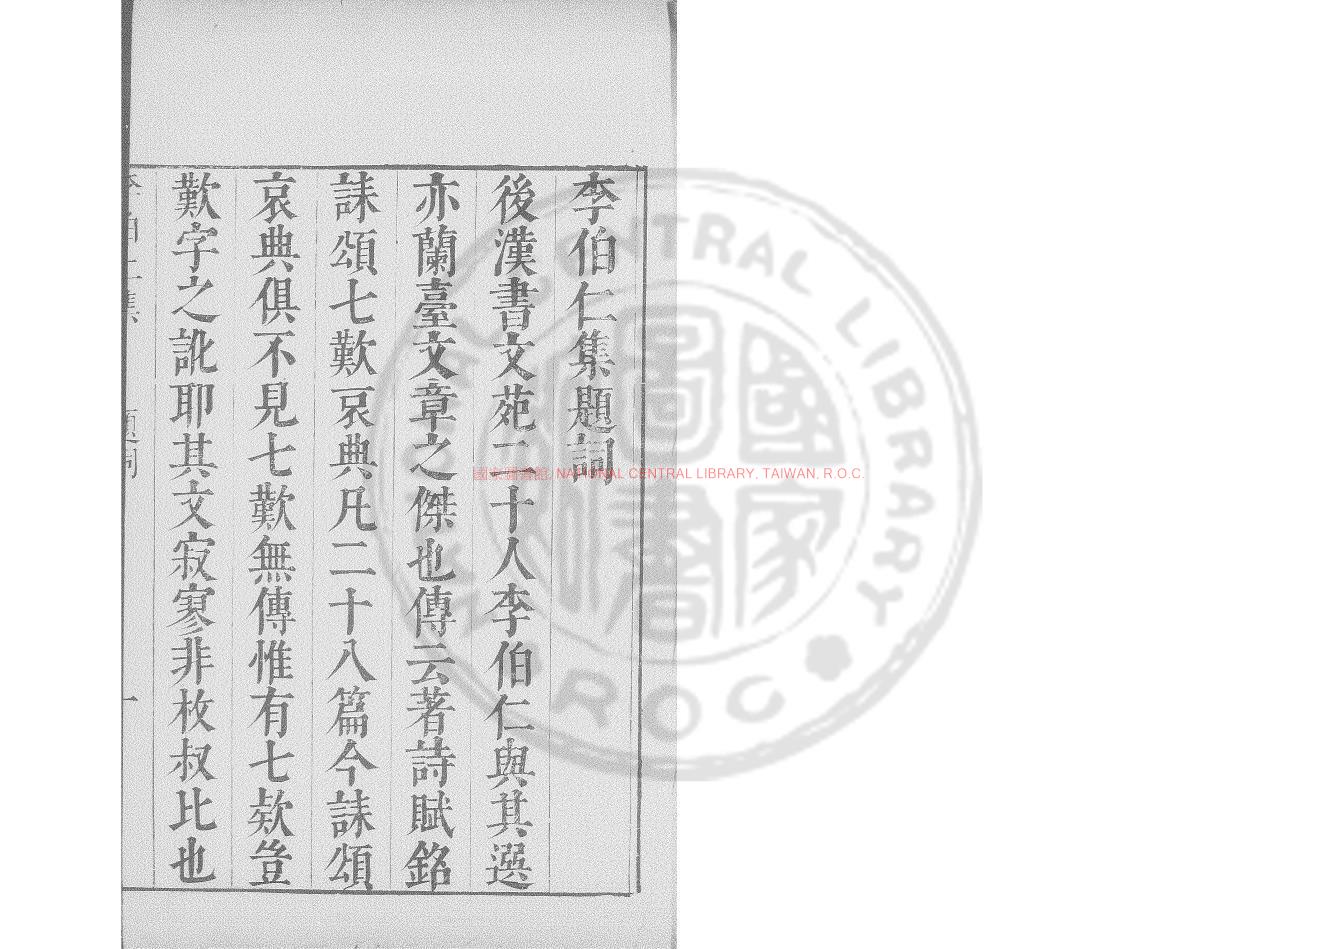 李伯仁集題詞
後漢書文苑二十人李伯仁與其選
亦蘭臺文章之傑也傳云著詩賦銘
誄頌七歎哀典凡二十八篇今誄頌
哀典俱不見七歎無傳惟有七欵豈
歎字之訛耶其文寂寥非枚叔比也
李伯仁集 題詞 一
國家圖書館, NATIONAL CENTRAL LIBRARY, TAIWAN, R.O.C.